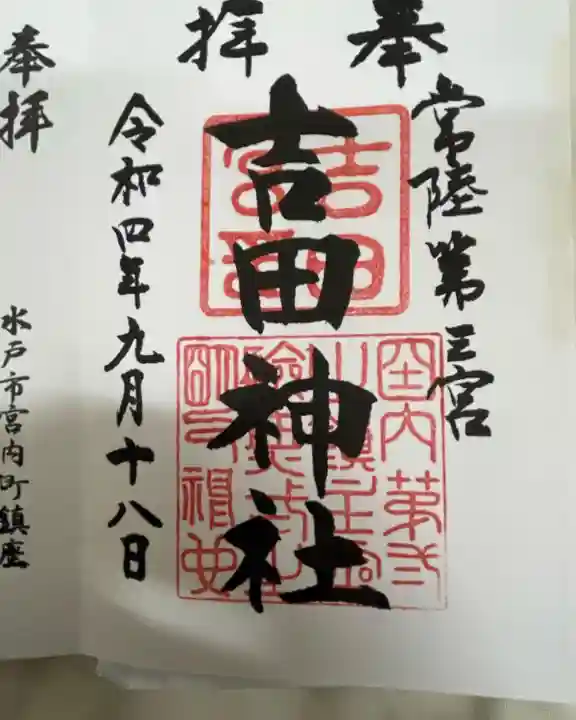 奉拝
常陸第三宮
吉田神社
令和四年九月十八日
奉拝
水戸市宮内町鎮座